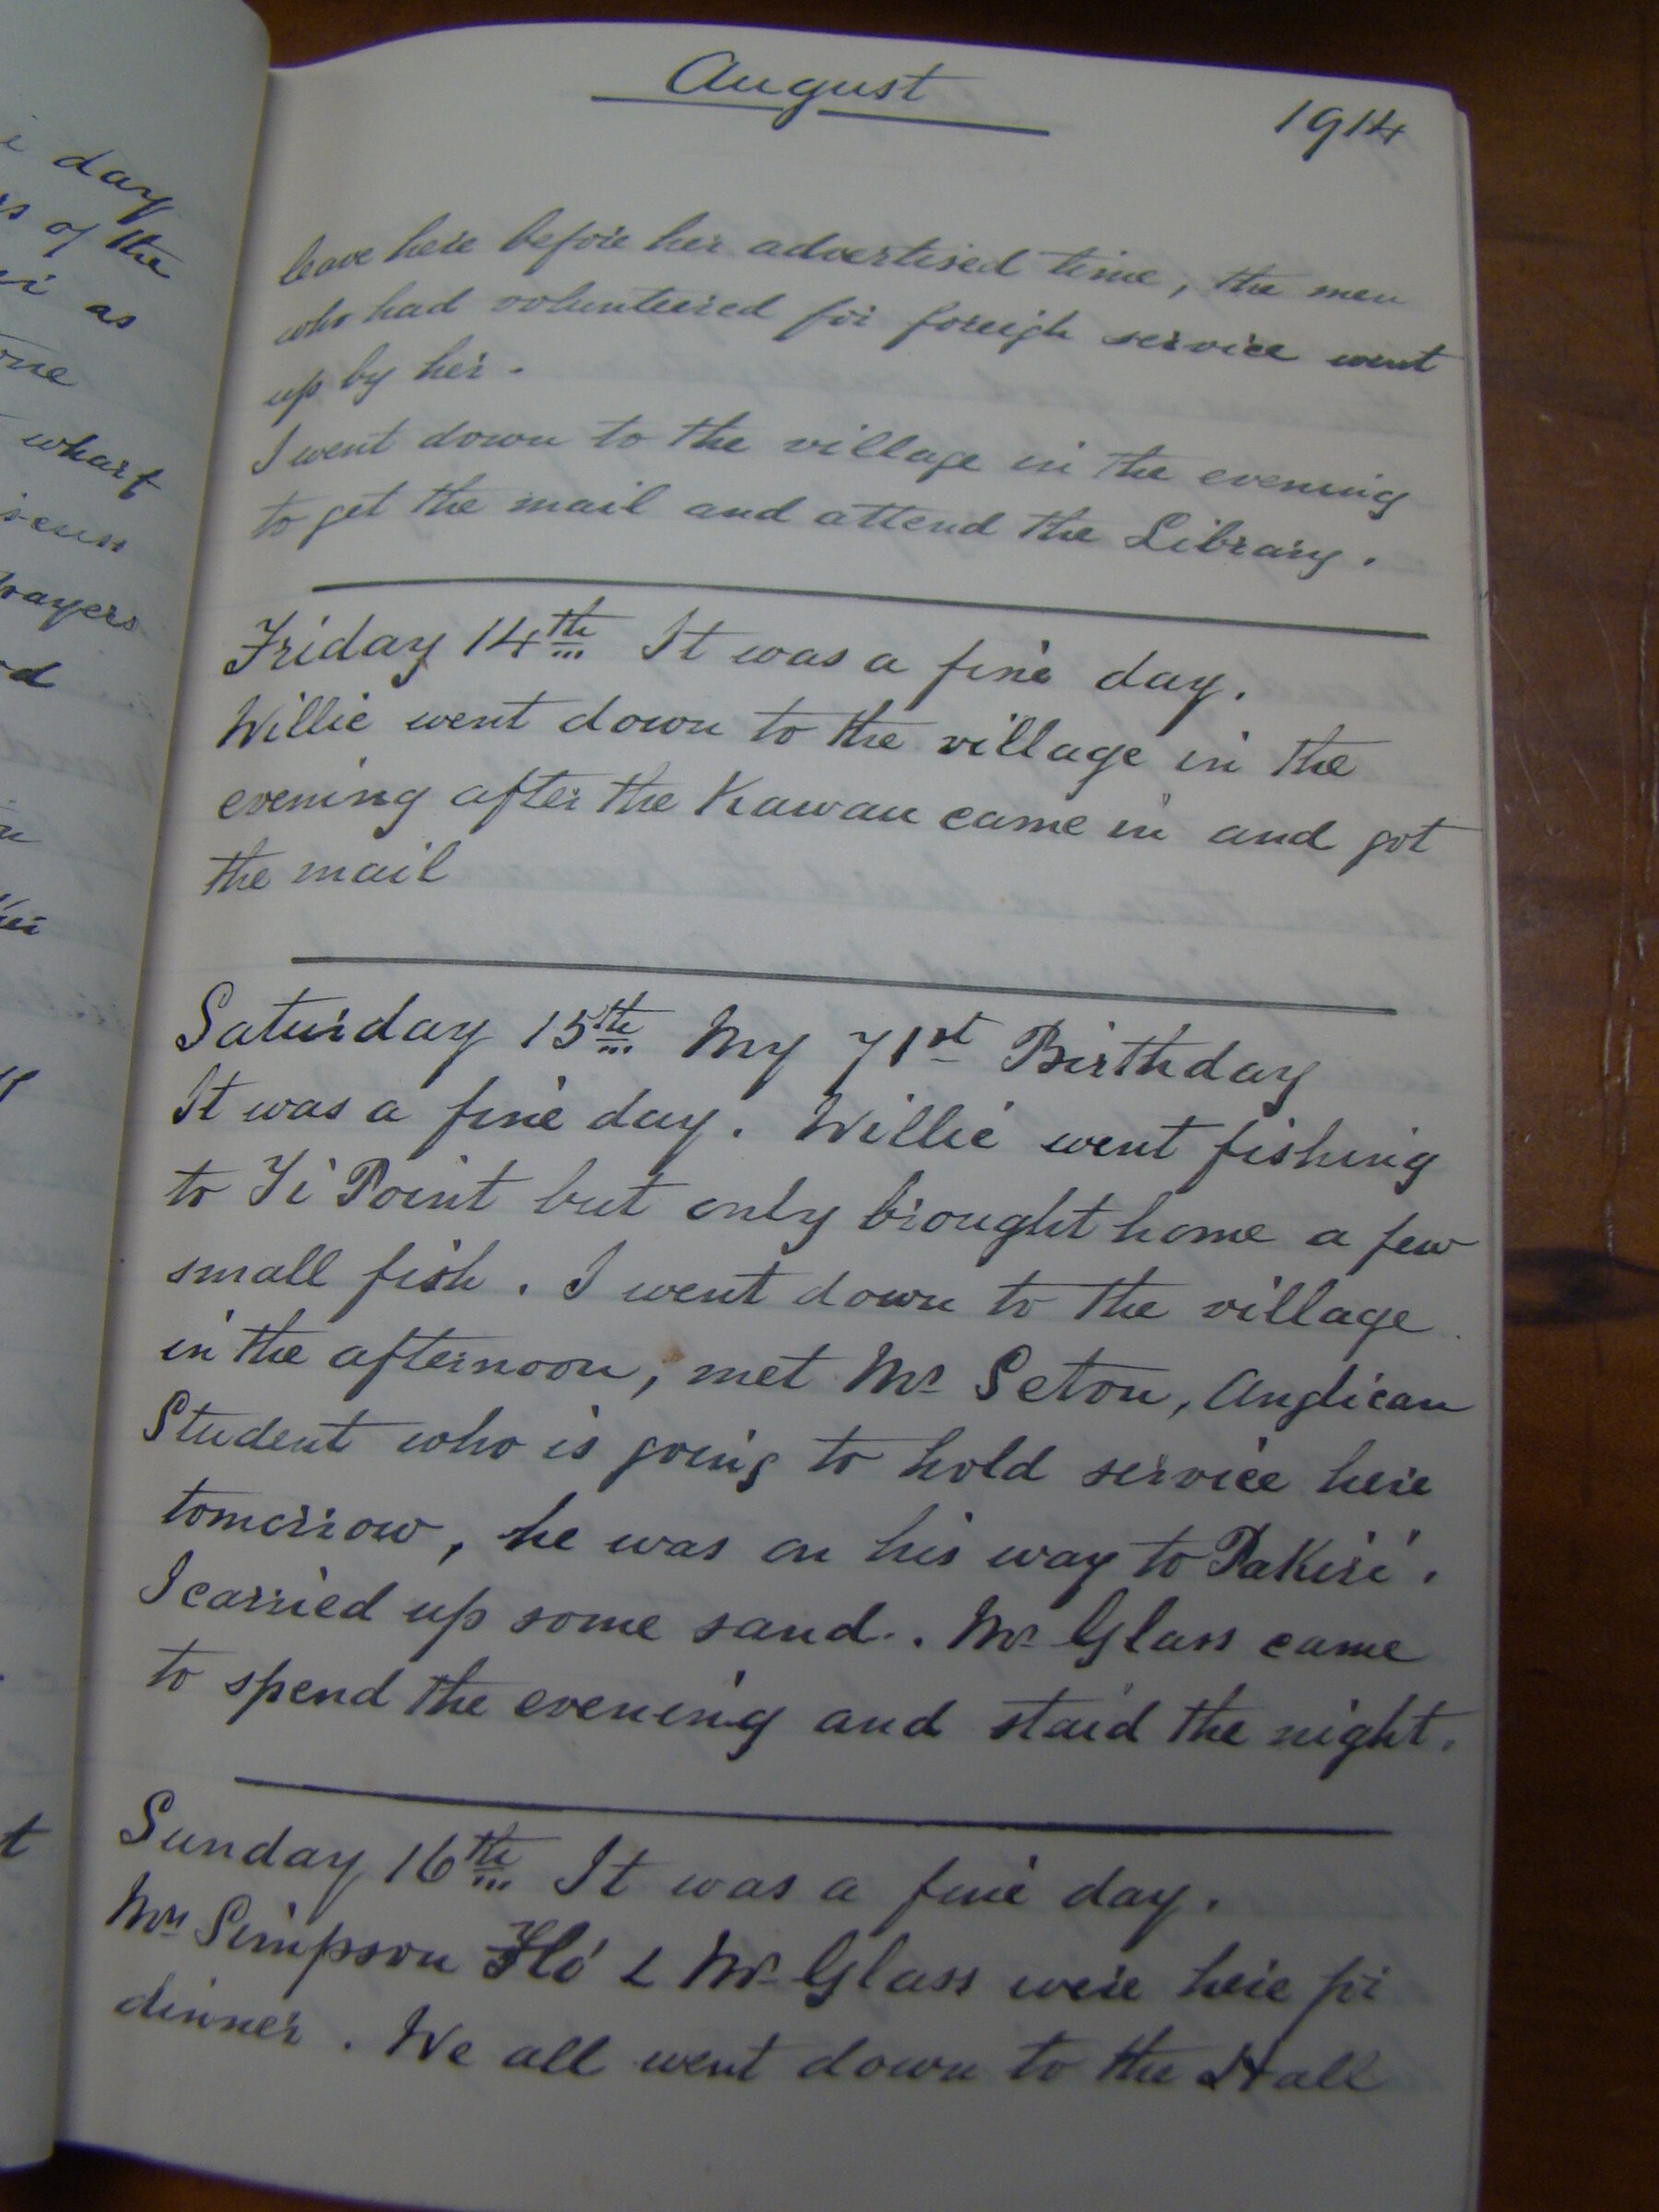 August
1914
leave here before her advertised time, the men
who had volunteered for foreign service went
up by her.
I went down to the village in the evening
to get the mail and attend the Library.
Friday 14th It was a fine day.
Willie went down to the village in the
evening after the Kawau came in and got
the mail
Saturday 15th My 71st Birthday
It was a fine day. Willie went fishing
to Ti Point but only brought home a few
small fish. I went down to the village
in the afternoon, met Mr Seton, Anglican
Student who is going to hold service here
tomorrow, he was on his way to Pakiri.
I carried up some sand. Mr Glass came
to spend the evening and staid the night.
Sunday 16th It was a fine day.
Mrs Simpson Flo & Mr Glass were here for
dinner. We all went down to the Hall
day
of the
as
wharf